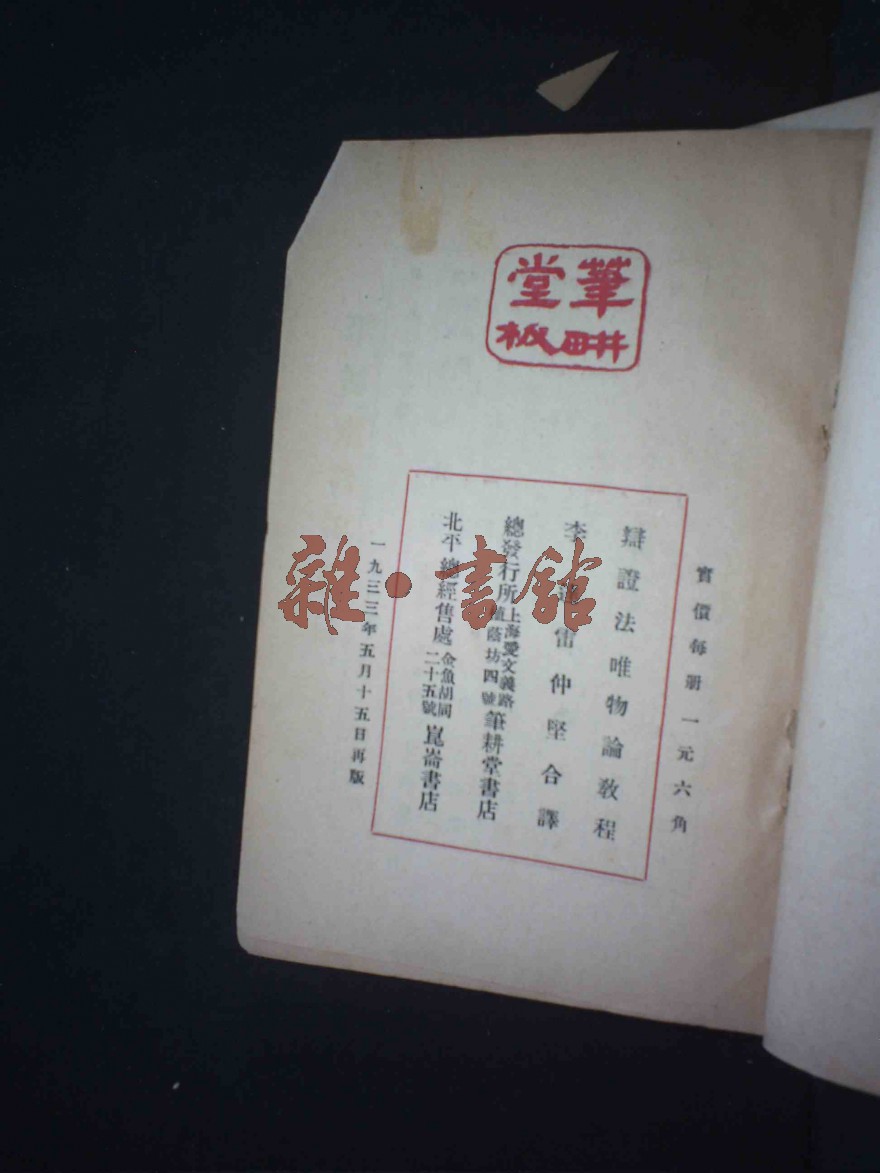 筆耕
堂板
實價每册一元六角
辯證法唯物論教程
李達雷仲堅合譯
總發行所
上海愛文義路
蔭坊四號
筆耕堂書店
北平總經售處
金魚胡同
二十五號
崑崙書店
一九三三年五月十五日再版
雜·書館